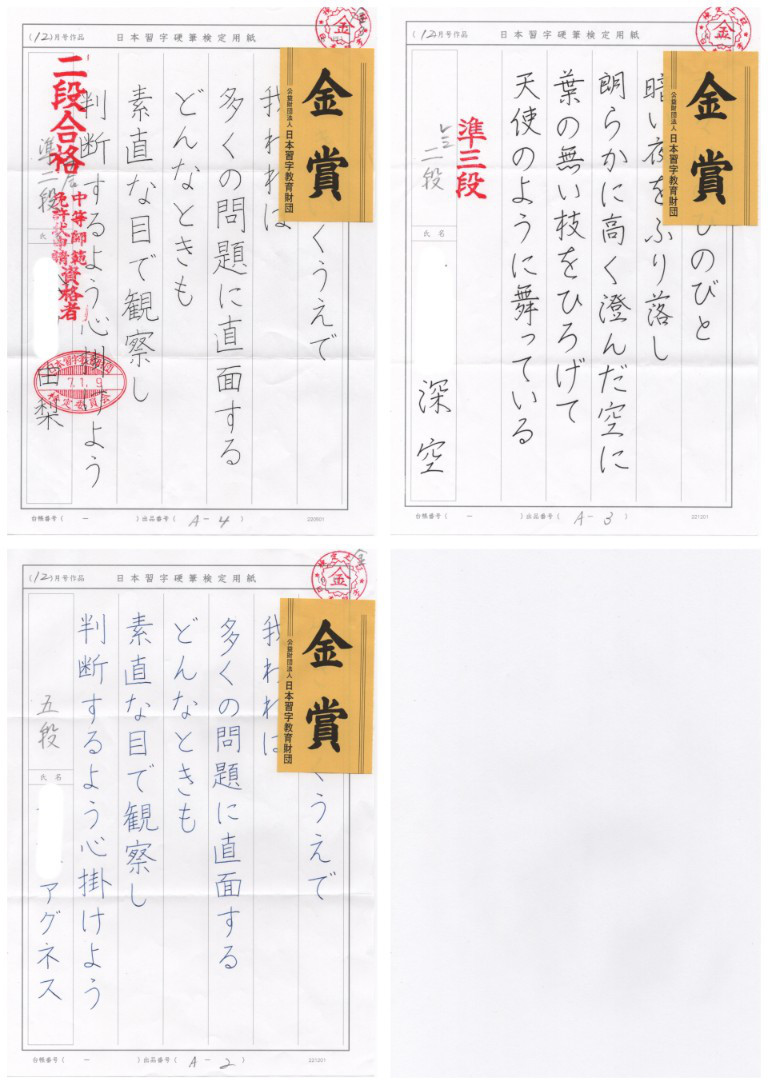 (12)月号作品
日本習字硬筆検定用紙
金
金賞
公益財団法人 日本習字教育財団
くうえで
我われは
多くの問題に直面する
どんなときも
素直な目で観察し
判断するよう心掛けよう
二段合格
中等師範
免許状申請資格者
準二段
氏
7.1.9
検定委員会
由梨
台帳番号( ー )出品番号( A-4 )
220601
(12)月号作品
日本習字硬筆検定用紙
金
金賞
公益財団法人 日本習字教育財団
のびと
暗い夜をふり落し
朗らかに高く澄んだ空に
葉の無い枝をひろげて
天使のように舞っている
準三段
二段
氏名
深空
台帳番号( ー )出品番号( A-3 )
221201
(12)月号作品
日本習字硬筆検定用紙
金
金賞
公益財団法人 日本習字教育財団
うえで
我われは
多くの問題に直面する
どんなときも
素直な目で観察し
判断するよう心掛けよう
五段
氏名
アグネス
台帳番号( ー )出品番号( A-2 )
221201